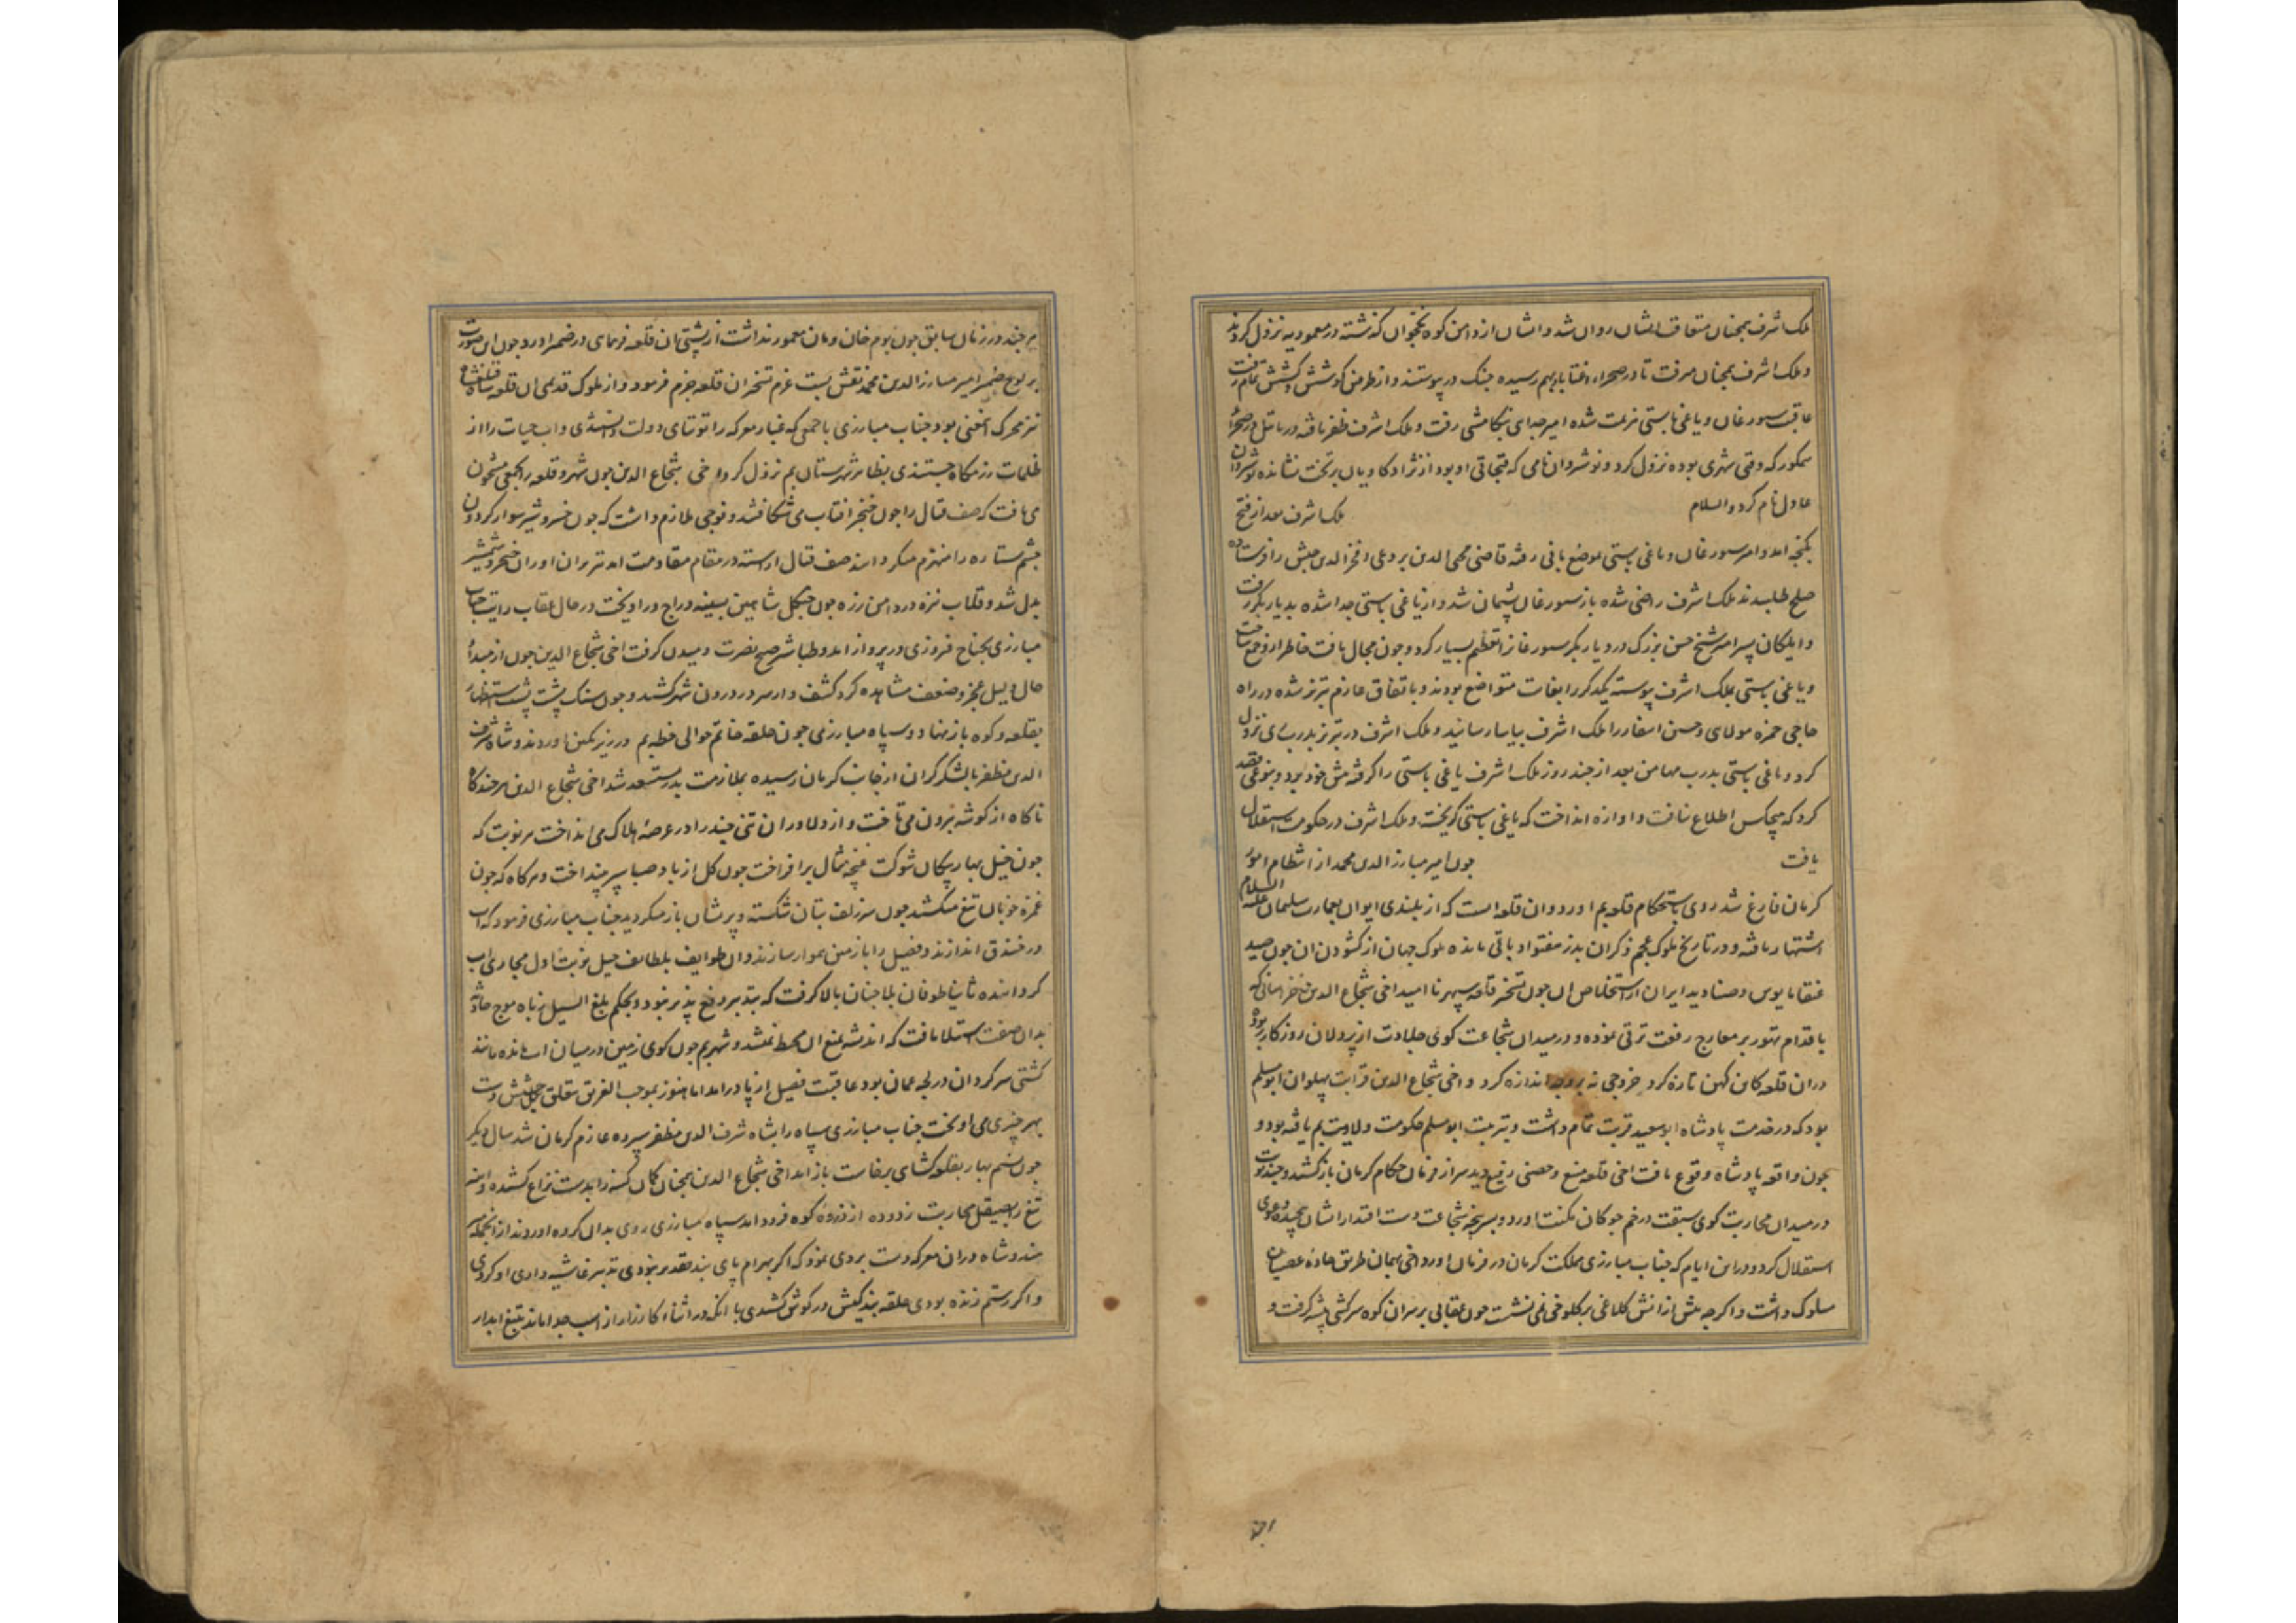 ملک اشرف همچنان متعاقب ایشان روان شد و ایشان از دامن کوه نخجوان کذشته در معموریه نزول کردند
و ملک اشرف همچنان میرفت تا در صحراء اغتاباد بهم رسیده جنک در پیوستند و از طرفین کوشش و کشش تمام رفت
عاقبت سیورغان و یاغی باستی هزیمت شده امیر جدای بتکامشی رفت و ملک اشرف ظفر یافته در
که وقتی شهری بوده نزول کرد و نوشروان نامی که قبجاقی او بود از نژاد کاویان بر تخت نشانده نوشروان
عادل نام کرد والسلام ملک اشرف بعد از فتح
بکنجه امد و امیر سیورغان و یاغی باستی بموضع رفته قاضی محی الدین بردعی و فخر الدین حبش را فرستاده
صلح طلبیدند ملک اشرف راضی شده باز سیورغان پشیمان شد و از یاغی باستی جدا شده بدیار بکر رفت
و ایلکان پسر امیر شیخ حسن بزرک در دیار بکر سیورغانرا تعظیم بسیار کرد و چون مجال یافت خاطر از و جمع ساخت
و یاغی باستی بملک اشرف پیوسته یکدیکر را بغایت متواضع بودند و باتفاق عازم تبریز شده در راه
حاجی حمزه مولای و حسن را ملک اشرف بیاسا رسانید و ملک اشرف در تبریز بدرب ری نزول
کرد و یاغی باستی بدرب مهامین بعد از چند روز ملک اشرف یاغی باستی را کرفته پیش خود برد و بنوعی فقد
کرد که هیچکس اطلاع نیافت و اوازه انداخت که یاغی باستی کریخته و ملک اشرف در حکومت استقلال
یافت چون امیر مبارز الدین محمد از انتظام امور
کرمان فارغ شد روی باستحکام قلعه بم اورد و ان قلعه است که از بلندی ایوان بعمارت سلیمان علیه السلام
اشتهار یافته و در تاریخ ملوک عجم ذکر ان بدز هفتواد باقی مانده ملوک جهان از کشودن ان چون صید
عنقا مایوس و صنادید ایران از استخلاص ان چون تسخیر قلعه سپهر ناامید اخی شجاع الدین خراسانی که
باقدام تهور بر معارج رفعت ترقی نموده و در میدان شجاعت کوی جلادت از پردلان روزکار ربوده
دران قلعه کاین کهن تازه کرد خروجی نه بر وجه اندازه کرد و اخی شجاع الدین قرابت پهلوان ابو مسلم
بود که در خدمت پادشاه ابو سعید قربت تمام داشت و بتربیت ابو مسلم حکومت ولایت بم یافته بود و
چون واقعه پادشاه وقوع یافت اخی قلعه منیع و حصنی رفیع دید سر از فرمان حکام کرمان باز کشید و چند نوبت
در میدان محاربت کوی سبقت در خم چوکان مکنت اورد و بسرپنجه شجاعت دست اقتدار ایشان پیچیده دعوی
استقلال کرد و دراین ایام که جناب مبارزی مملکت کرمان در فرمان اورد اخی بهمان طریق جاده عصیان
سلوک داشت و اکرچه پیش از انش کلاغی بر کلوخی نمی نشست چون عقابی بر سر ان کوه سرکشی پیشه کرفت و
هر چند در زمان سابق چون بوم خان و مان معمور نداشت از پشتی ان قلعه فرهمای در ضمیر اورد و چون این صورت
بر لوح ضمیر امیر مبارز الدین محمد نقش بست عزم تسخیر ان قلعه جزم فرمود و از ملوک قدیمی ان قلعه شاه
نیز محرک این معنی بود جناب مبارزی با جمعی که غبار معرکه را توتیای دولت دانستندی و اب حیات را از
ظلمات رزمکاه جستندی بظاهر شهرستان بم نزول کرد اخی شجاع الدین چون شهر و قلعه را بجمعی مشحون
می یافت که صف قتال را چون خنجر افتاب می شکافتند و فوجی ملازم داشت که چون خسرو شیر سوار کردون
چشم ستاره را منهزم میکردانند صف قتال اراسته در مقام مقاومت امد تیر بران اوران خنجر و شمشیر
بدل شد و قلاب نیزه در دامن زره چون چنکل شاهین بسینه دراج دراویخت در حال عقاب رایت جناب
مبارزی بجناح فیروزی در پرواز امد و طباشیر صبح نصرت دمیدن کرفت اخی شجاع الدین چون از مبداء
حال دلیل عجز و ضعف مشاهده کرد کشف وار سر در درون شهر کشید و چون سنک پشت پشت استظهار
بقلعه و کوه باز نهاد و سپاه مبارزی چون حلقه خاتم حوالی خطه بم در زیر نکین اوردند و شاه شرف
الدین مظفر با لشکر کران از جانب کرمان رسیده بملازمت پدر مستعد شد اخی شجاع الدین هر چند کاه
ناکاه از کوشه بیرون می تاخت و از دلاوران تنی چند را در عرصه هلاک می انداخت هر نوبت که
چون خیل بهار پیکان شوکت غنچه مثال بر افراخت چون کل از باد صبا سپر بینداخت و هر کاه که چون
غمزه خوبان تیغ میکشید چون سر زلف بتان شکسته و پریشان باز میکردید جناب مبارزی فرمود که اب
در خندق اندازند و فصیل را با زمین هموار سازند و ان طوایف بلطایف حیل نوبت اول مجاری اب
کردانیده ثانیا طوفان بلا چنان بالا کرفت که بتدبیر دفع پذیر نبود و بحکم بلغ السیل زباه موج حادثه
بدان صفت استیلا یافت که اندیشه بمنع ان محیط نمیشد و شهر بم چون کوی زمین در میان اب مانده مانند
کشتی سرکردان در لجه عمان بود عاقبت فصیل از پا درامد اما هنوز بموجب الغریق یتعلق بکل حشیش دست
بهر چیزی می اویخت جناب مبارزی سپاه را بشاه شرف الدین مظفر سپرده عازم کرمان شد سال دیکر
چون نسیم بهار بقلعه کشای برخاست باز امد اخی شجاع الدین همچنان کمان کینه را بدست نزاع کشیده و
تیغ را بصیقل محاربت زدوده از ذروه کوه فرود امد سپاه مبارزی روی بدان کروه اوردند از انجمله
هندوشاه دران معرکه دست بردی نمود که اکر بهرام پای بند تقدیر نبودی غاشیه داری او کردی
و اکر رستم زنده بودی حلقه بندکیش در کوش کشیدی با انکه در اثناء کارزار از اسب جدا ماند بتیغ ابدار